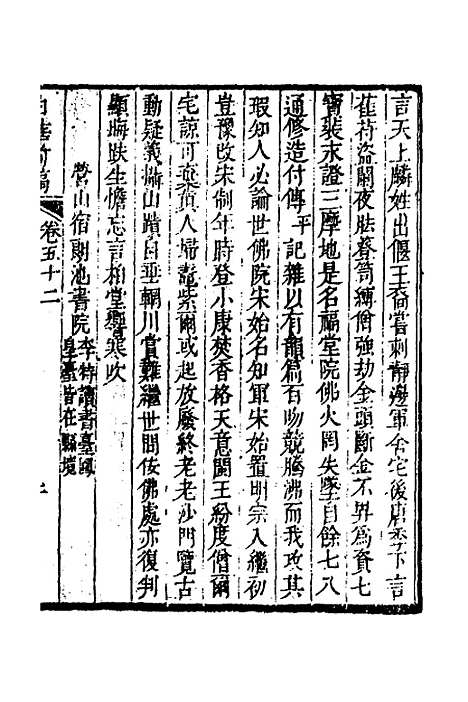 言天上麟姓出偃王裔嘗刺靜邊軍舍宅後唐季下言
萑苻盜闌夜胠簪笥縛僧強劫金頭斷金不畀為賫七
寶裝末證三摩地是名福堂院佛火罔失墜自餘七八
通修造付傳平記雜以有韻篇百吻競騰沸而我攻其
瑕知人必論世佛院宋始名知軍宋始置明宗入繼初
豈豫改宋制年時登小康焚香格天意閩王紛度僧爾
宅諒可棄貧人婦鼇紫爾或起放廢終老老沙門覽古
動疑義構山蹟自垂輞川賞難繼世間佞佛處亦復判
顯晦趺坐憺忘言柏堂響寒吹
營山宿朗池書院李特讀書臺國皇臺皆在縣境
卷五十二